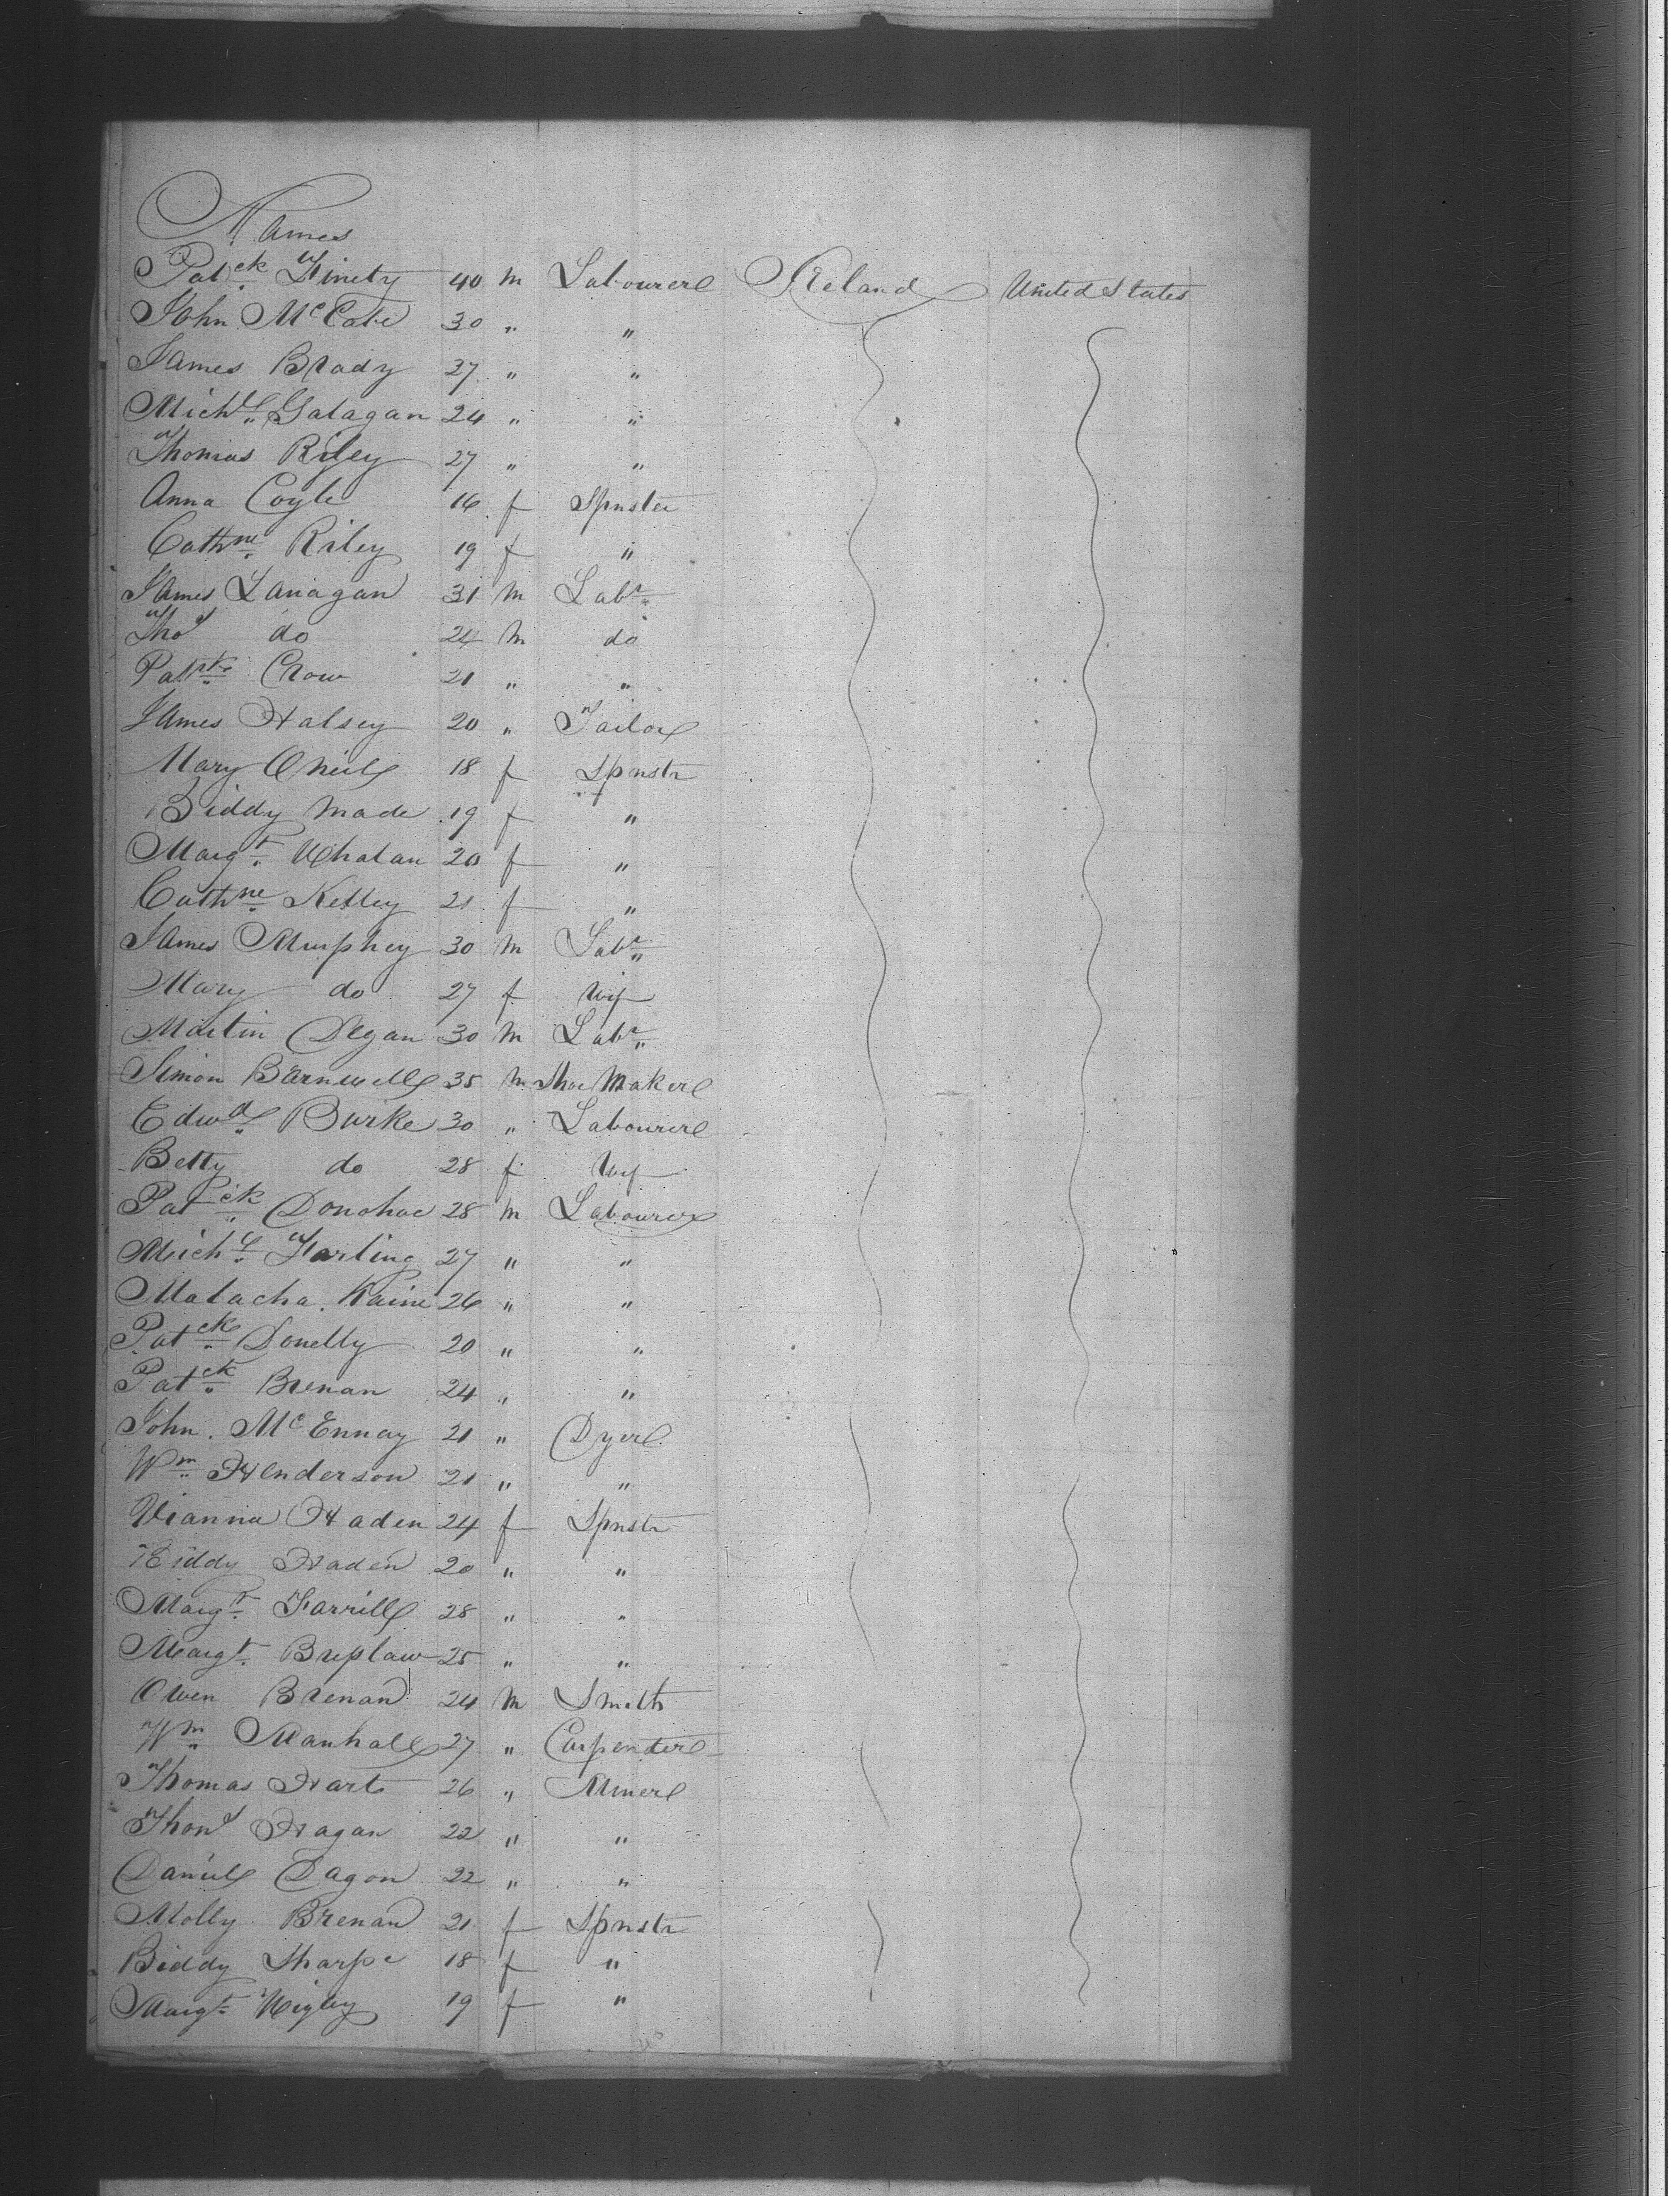 Names
Patck Finety 40 m Labourer Ireland United States
John McCabe 30 " "
James Brady 27 " "
Michl Galagan 24 " "
Thomas Riley 27 " "
Anna Coyle 16 f Spnster
Cathne Riley 19 f "
James Lanagan 31 m Labr
Thos do 24 m do
Patrk Crow 21 " "
James Halsey 20 " Tailor
Mary Oneil 18 f Spnstr
Biddy Made 19 f "
Margt Whalan 20 f "
Cathne Kelley 21 f "
James Murphey 30 m Labr
Mary do 27 f Wif
Martin Degan 30 m Labr
Simon Barnewell 35 m Shoe Maker
Edwd Burke 30 " Labourer
Betty do 28 f Wif
Patck Donohoe 28 m Labourer
Michl Farling 27 " "
Malacha Kaine 26 " "
Patck Donelly 20 " "
Patck Brenan 24 " "
John McEnnay 21 " Dyer
Wm Henderson 21 " "
Haden 24 f Spnstr
Biddy Haden 20 " "
Margt Farrill 28 " "
Margt Breslaw 25 " "
Owen Brenan 24 m Smith
Wm Marshall 27 " Carpenter
Thomas Hart 26 " Miner
Thos Hagan 22 " "
Daniel Dagon 22 " "
Molly Brenan 21 f Spnstr
Biddy Sharpe 18 f "
Margt 19 f "